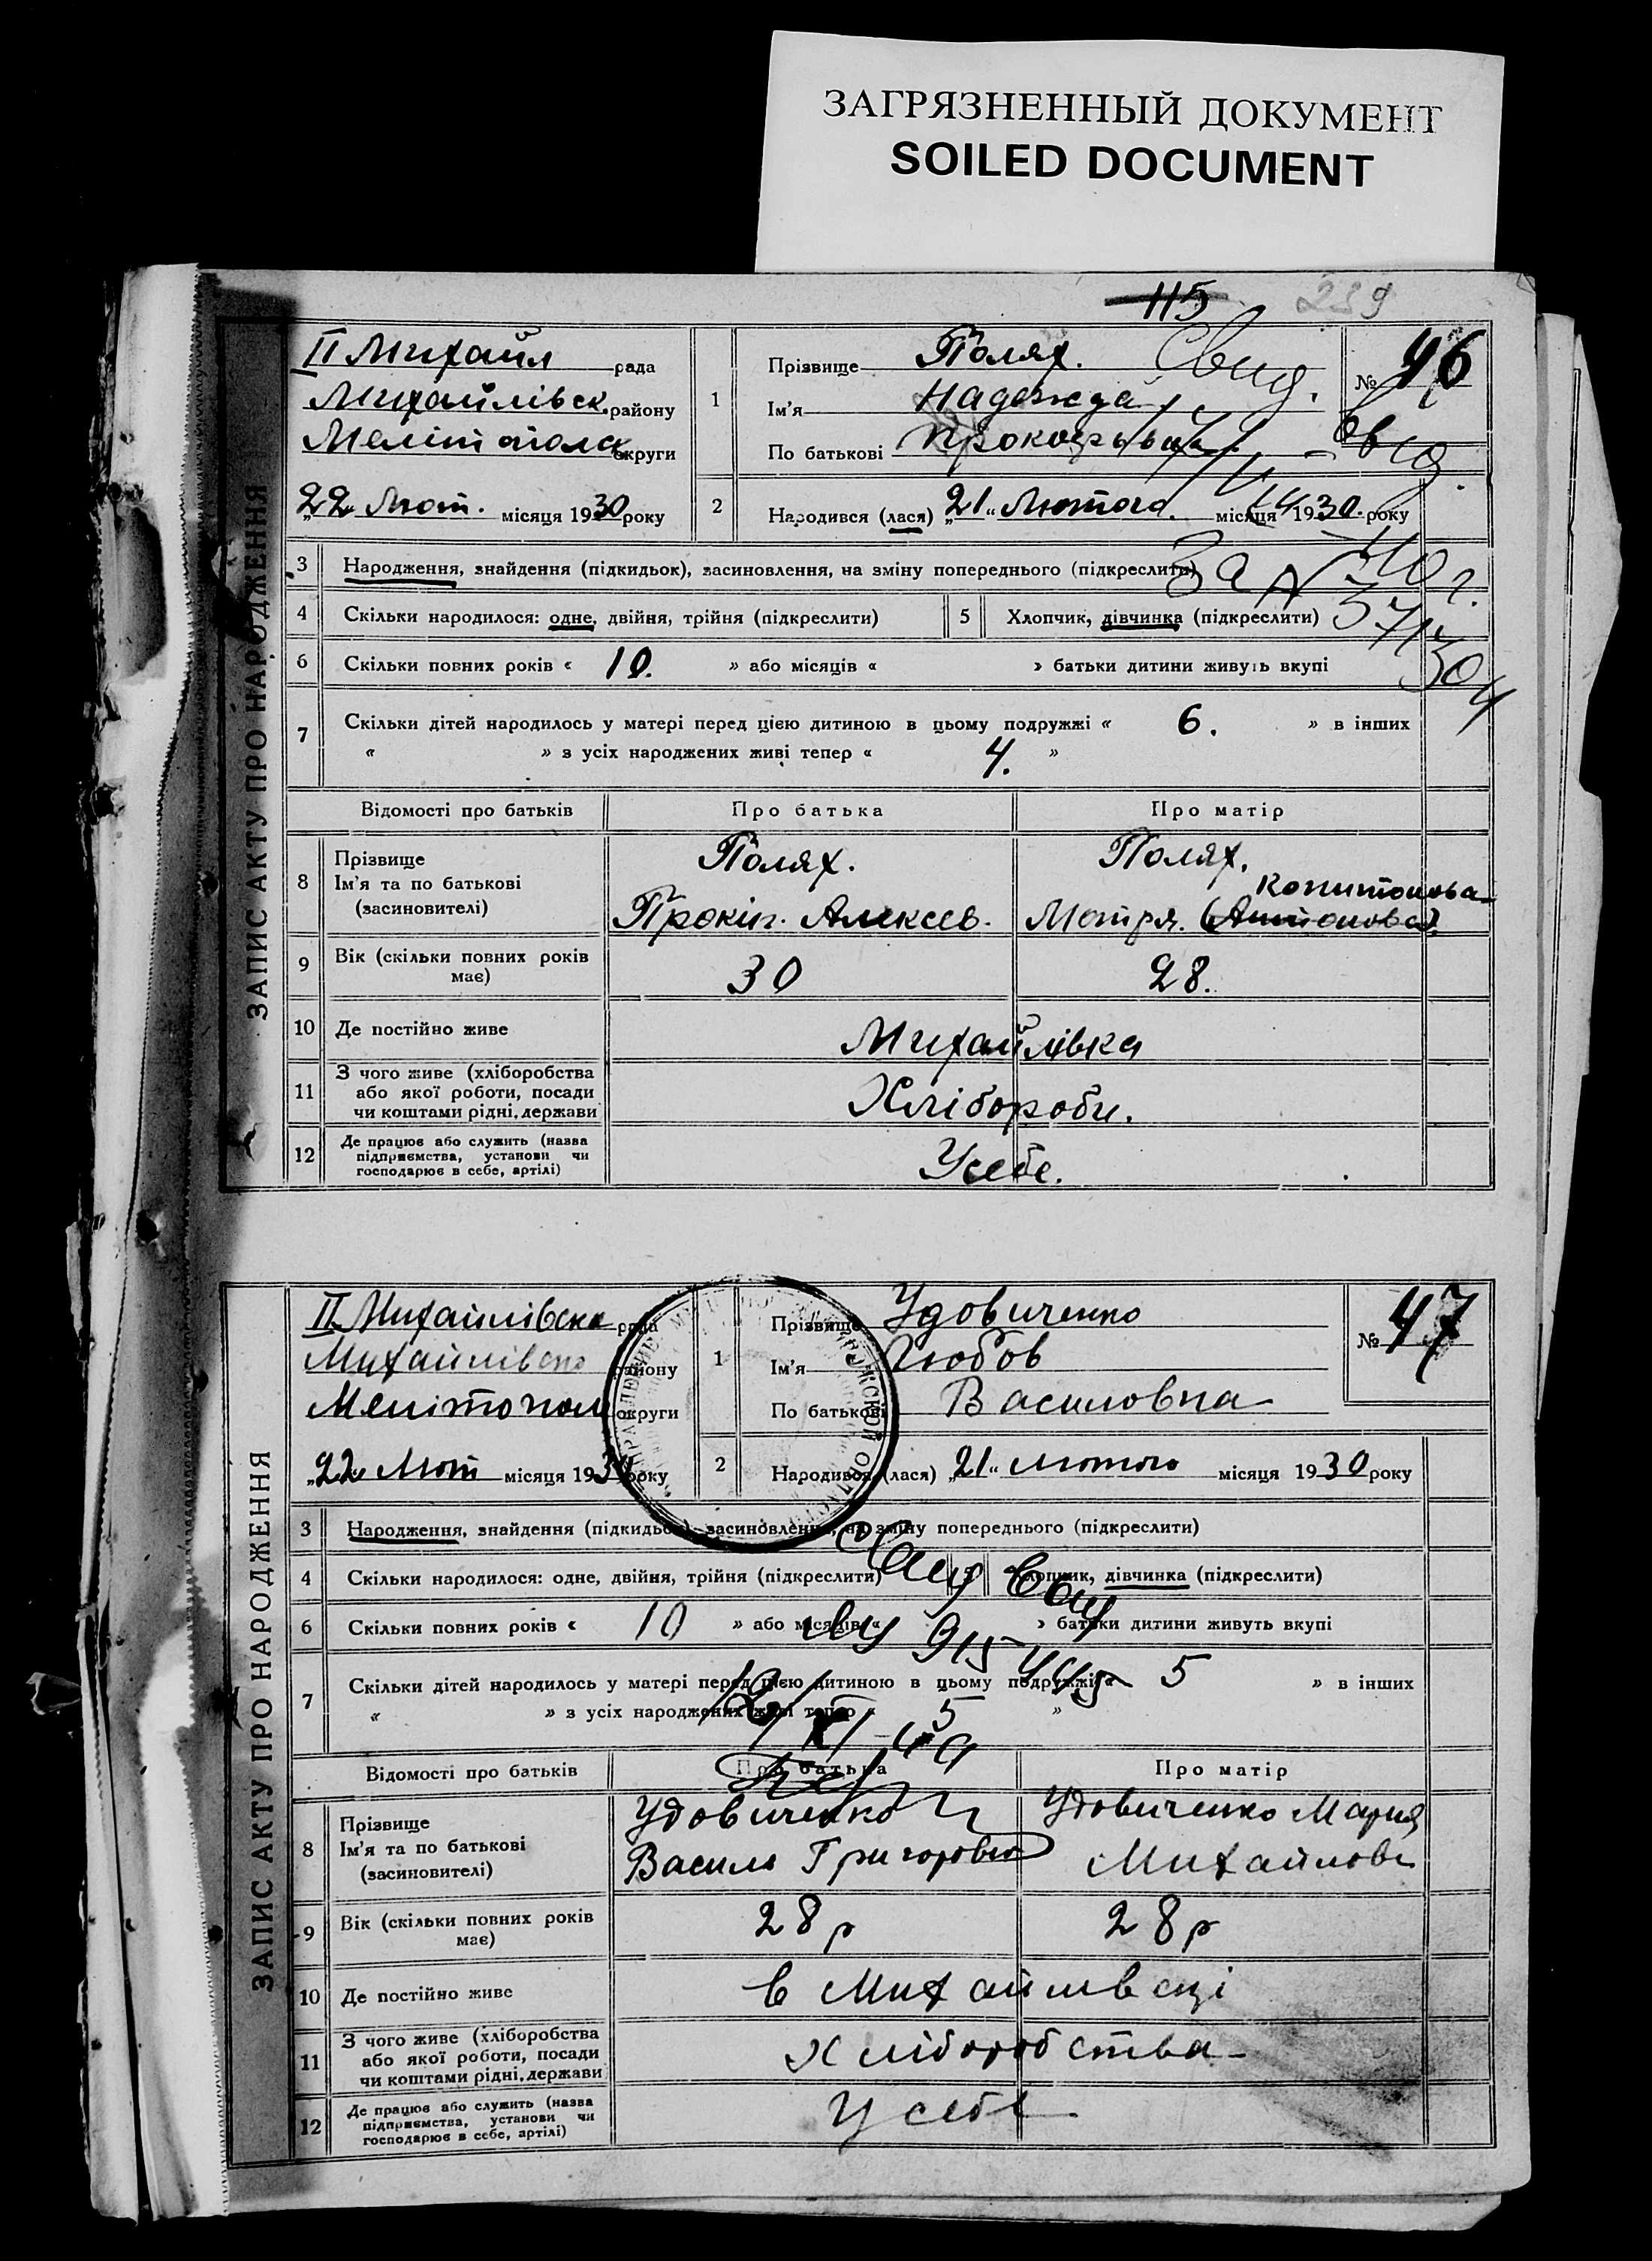 ЗАГРЯЗНЕННЫЙ ДОКУМЕНТ
SOILED DOCUMENT
115 239
ЗАПИС АКТУ ПРО НАРОДЖЕННЯ
ІІ Михайл рада
Михайлівск. району
Меліт округи
„22" Лют. місяця 1930 року
1
Прізвище Полях. Свид.
Ім'я Надежда
По батькові
№ 46
свид.
2 Народився (лася) „21" Лютого. місяця 1930. року
3 Народження, знайдення (підкидьок), засиновлення, на зміну попереднього (підкреслити)
За №
4 Скільки народилося: одне, двійня, трійня (підкреслити) 5 Хлопчик, дівчинка (підкреслити)
6 Скільки повних років « 10. » або місяців « » батьки дитини живуть вкупі
7 Скільки дітей народилось у матері перед цією дитиною в цьому подружжі « 6. » в інших
« » з усіх народжених живі тепер « 4. »
Відомості про батьків Про батька Про матір
8 Прізвище
Ім'я та по батькові
(засиновителі)
Полях.
Прокіп. Алексев.
Полях.
Копитонова
Мотря. (Антонова).
9 Вік (скільки повних років має) 30 28.
10 Де постійно живе Михайлівка
11 З чого живе (хліборобства
або якої роботи, посади
чи коштами рідні, держави
Хлібороби.
12 Де працює або служить (назва
підприємства, установи чи
господарює в себе, артілі)
Усебе.
ЗАПИС АКТУ ПРО НАРОДЖЕННЯ
ІІ Михайлівска рада
Михайлівско району
Мелітопол округи
„22" Лют місяця 1930 року
1
Прізвище Удовиченко
Ім'я Любов
По батькові Василовна
№ 47
2 Народився (лася) „21" лютого місяця 1930 року
3 Народження, знайдення (підкидьок), засиновлення, на зміну попереднього (підкреслити)
4 Скільки народилося: одне, двійня, трійня (підкреслити) 5 Хлопчик, дівчинка (підкреслити)
6 Скільки повних років « 10 » або місяців « » батьки дитини живуть вкупі
7 Скільки дітей народилось у матері перед цією дитиною в цьому подружжі « 5 » в інших
« » з усіх народжених живі тепер « 5 »
Відомості про батьків Про батька Про матір
8 Прізвище
Ім'я та по батькові
(засиновителі)
Удовиченко
Василь Григорович
Удовиченко Мария
Михайлов
9 Вік (скільки повних років має) 28 р 28 р
10 Де постійно живе в Михайлівсці
11 З чого живе (хліборобства
або якої роботи, посади
чи коштами рідні, держави
Хліборобства
12 Де працює або служить (назва
підприємства, установи чи
господарює в себе, артілі)
У себе